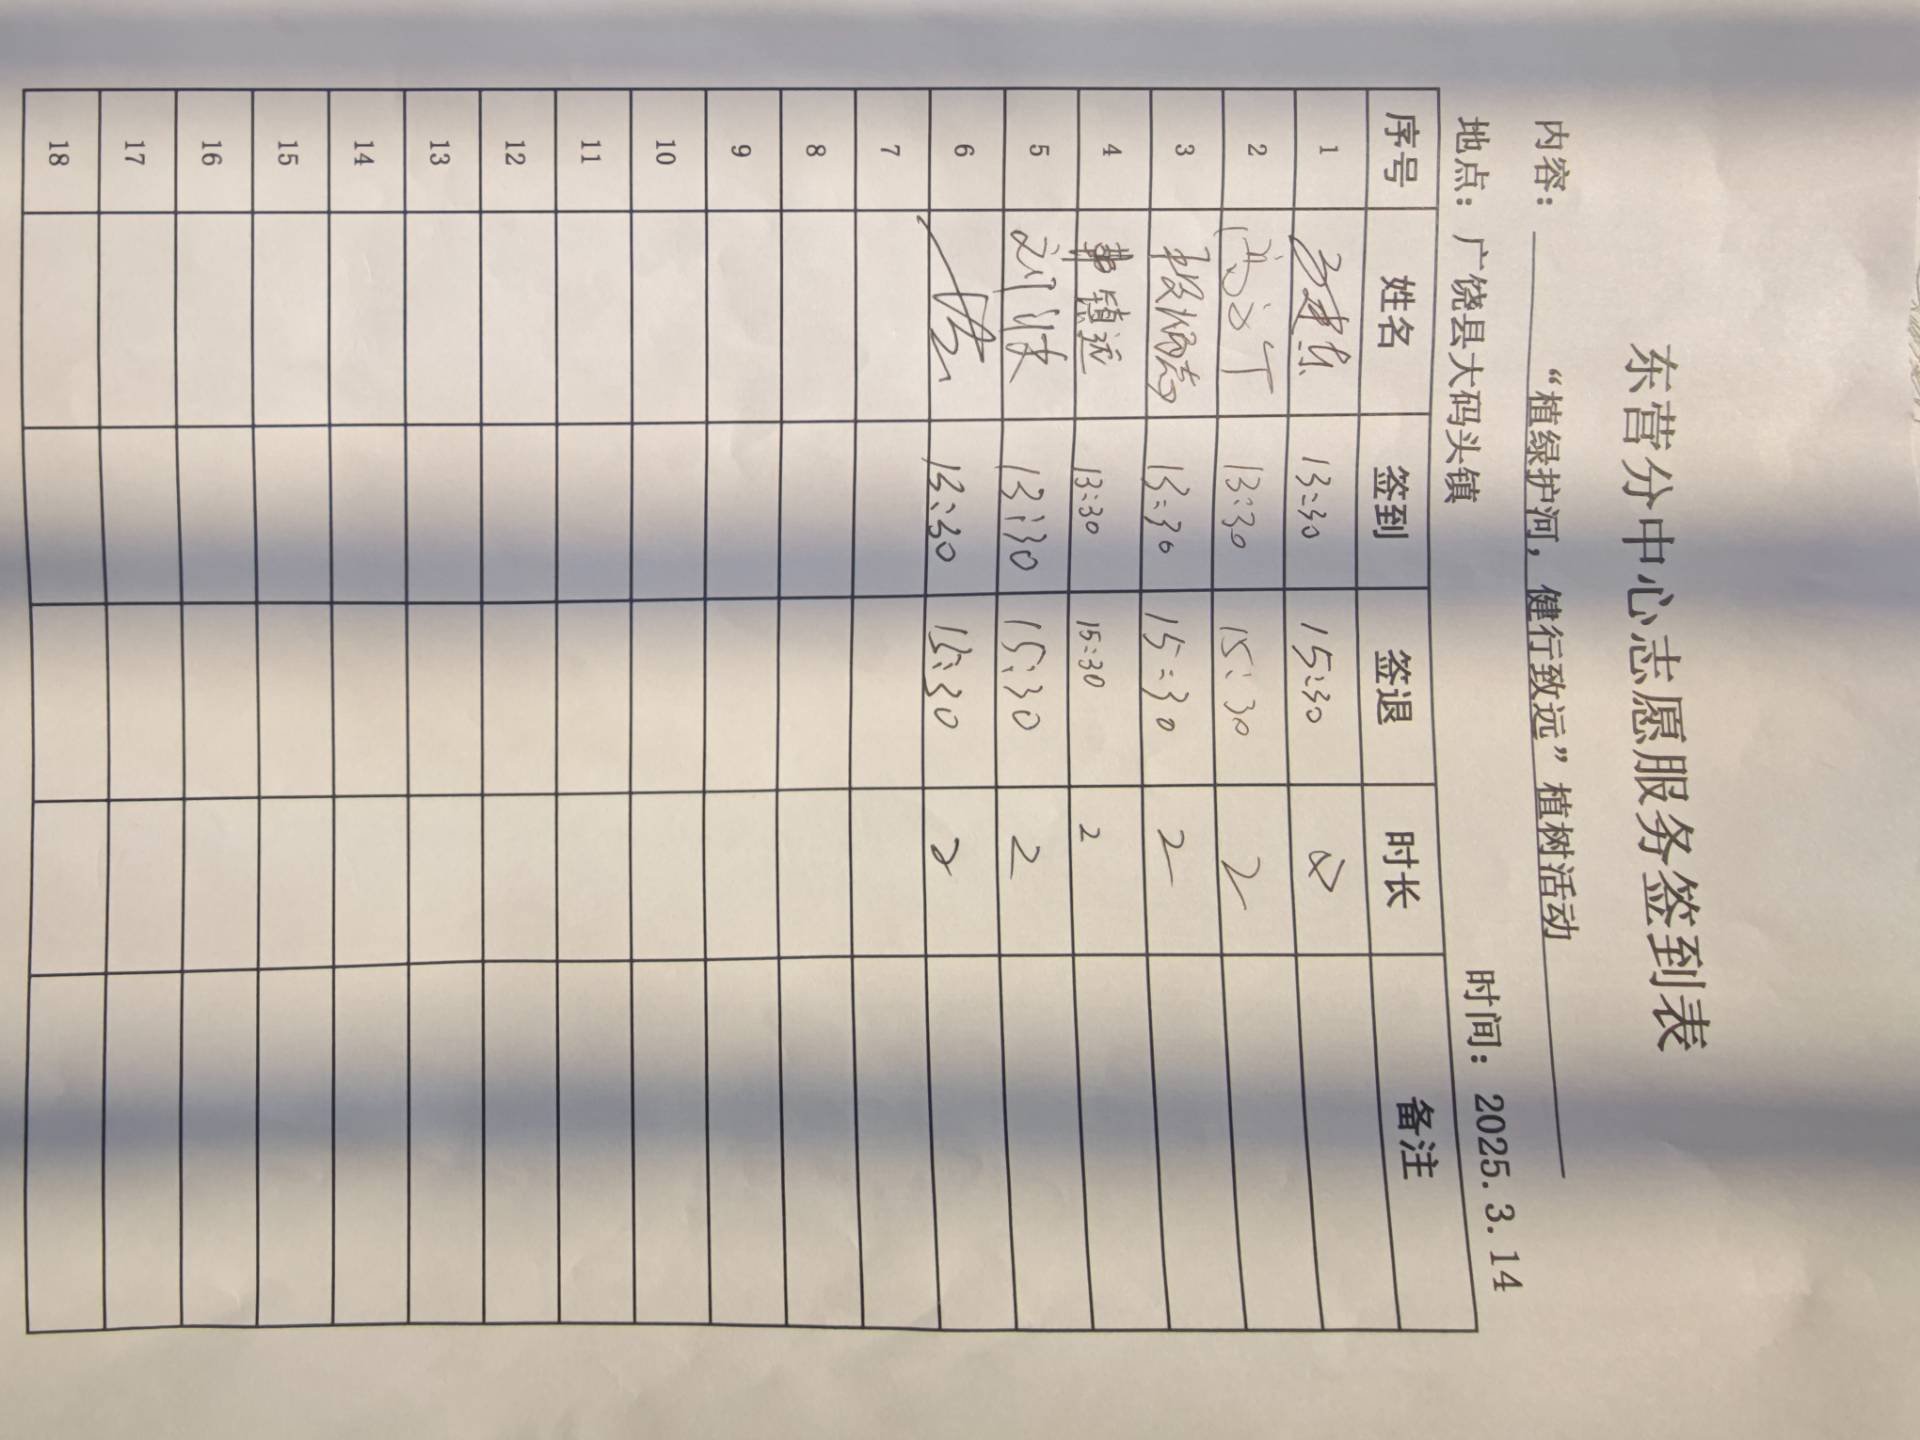 东营分中心志愿服务签到表
内容： “植绿护河，健行致远”植树活动
地点：广饶县大码头镇 时间：2025.3.14
序号 姓名 签到 签退 时长 备注
1 13:30 15:30 2
2 13:30 15:30 2
3 13:30 15:30 2
4 镇远 13:30 15:30 2
5 刘 13:30 15:30 2
6 13:30 15:30 2
7
8
9
10
11
12
13
14
15
16
17
18